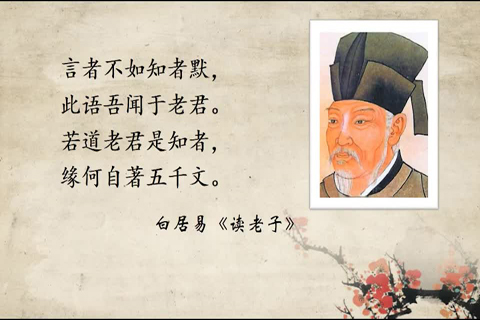 言者不如知者默，
此语吾闻于老君。
若道老君是知者，
缘何自著五千文。
白居易《读老子》